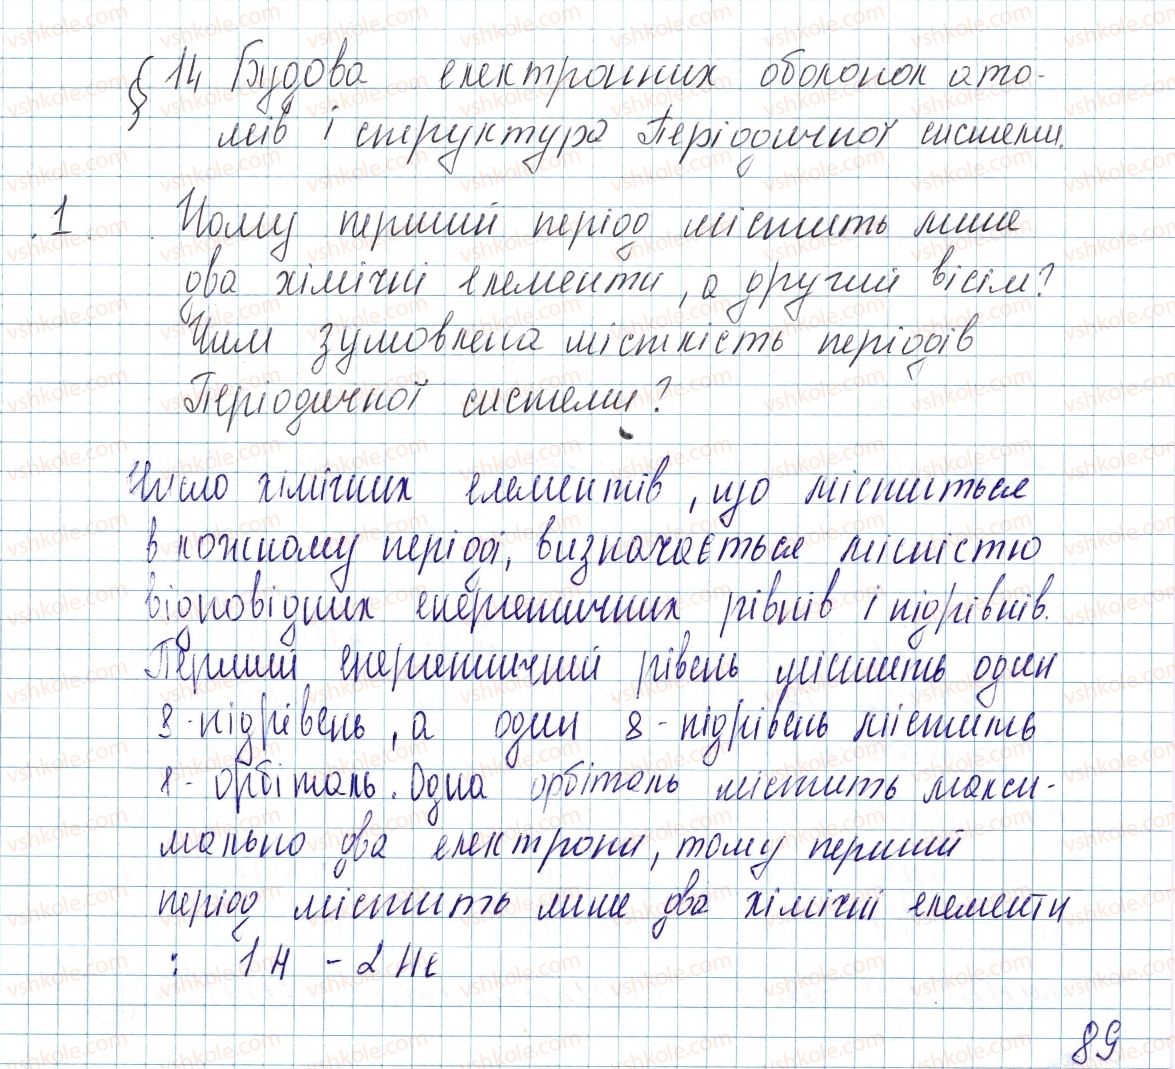 § 14 Будова електронних оболонок ато-
мів і структура Періодичної системи.
1. Чому перший період містить лише
два хімічні елементи, а другий вісім?
Чим зумовлена місткість періодів
Періодичної системи?
Число хімічних елементів, що міститься
в кожному періоді, визначається місністю
відповідних енергетичних рівнів і підрівнів.
Перший енергетичний рівень містить один
s-підрівень, а один s-підрівень містить
1-орбіталь. Одна орбіталь містить макси-
мально два електрони, тому перший
період містить лише два хімічні елементи
: 1H - 2He
89